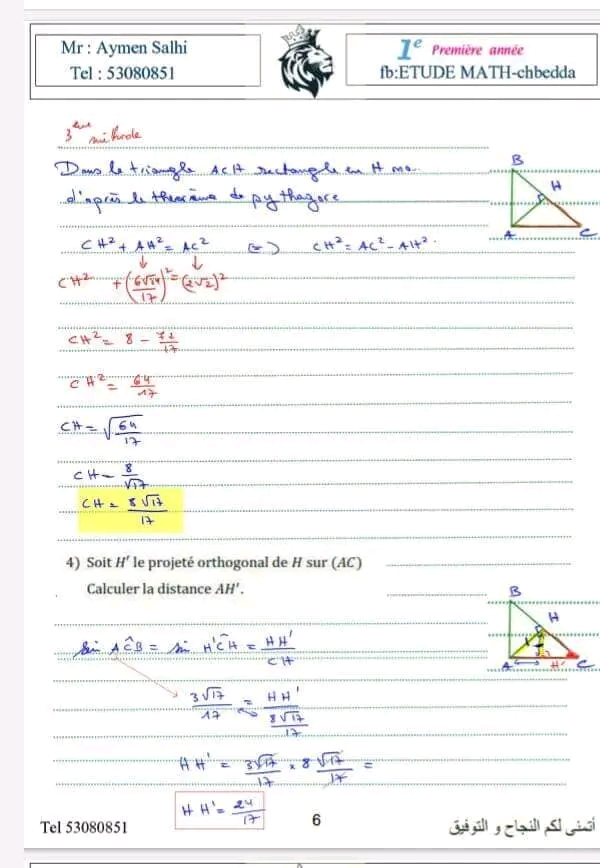 Mr : Aymen Salhi
Tel : 53080851
1e Première année
fb:ETUDE MATH-chbedda
3ème méthode
Dans le triangle ACH rectangle en H on a
d'après le theorème de pythagore
CH² + AH² = AC² (=) CH² = AC² - AH².
CH² + (6√34/17)² = (2√2)²
CH² = 8 - 72/17
CH² = 64/17
CH = √(64/17)
CH = 8/√17
CH = 8√17/17
B
H
A
C
4) Soit H' le projeté orthogonal de H sur (AC)
Calculer la distance AH'.
B
H
A
H'
C
Sin AĈB = sin H'ĈH = HH'/CH
3√17/17 = HH'/(8√17/17)
HH' = 3√17/17 × 8√17/17 =
HH' = 24/17
Tel 53080851
6
أتمنى لكم النجاح و التوفيق